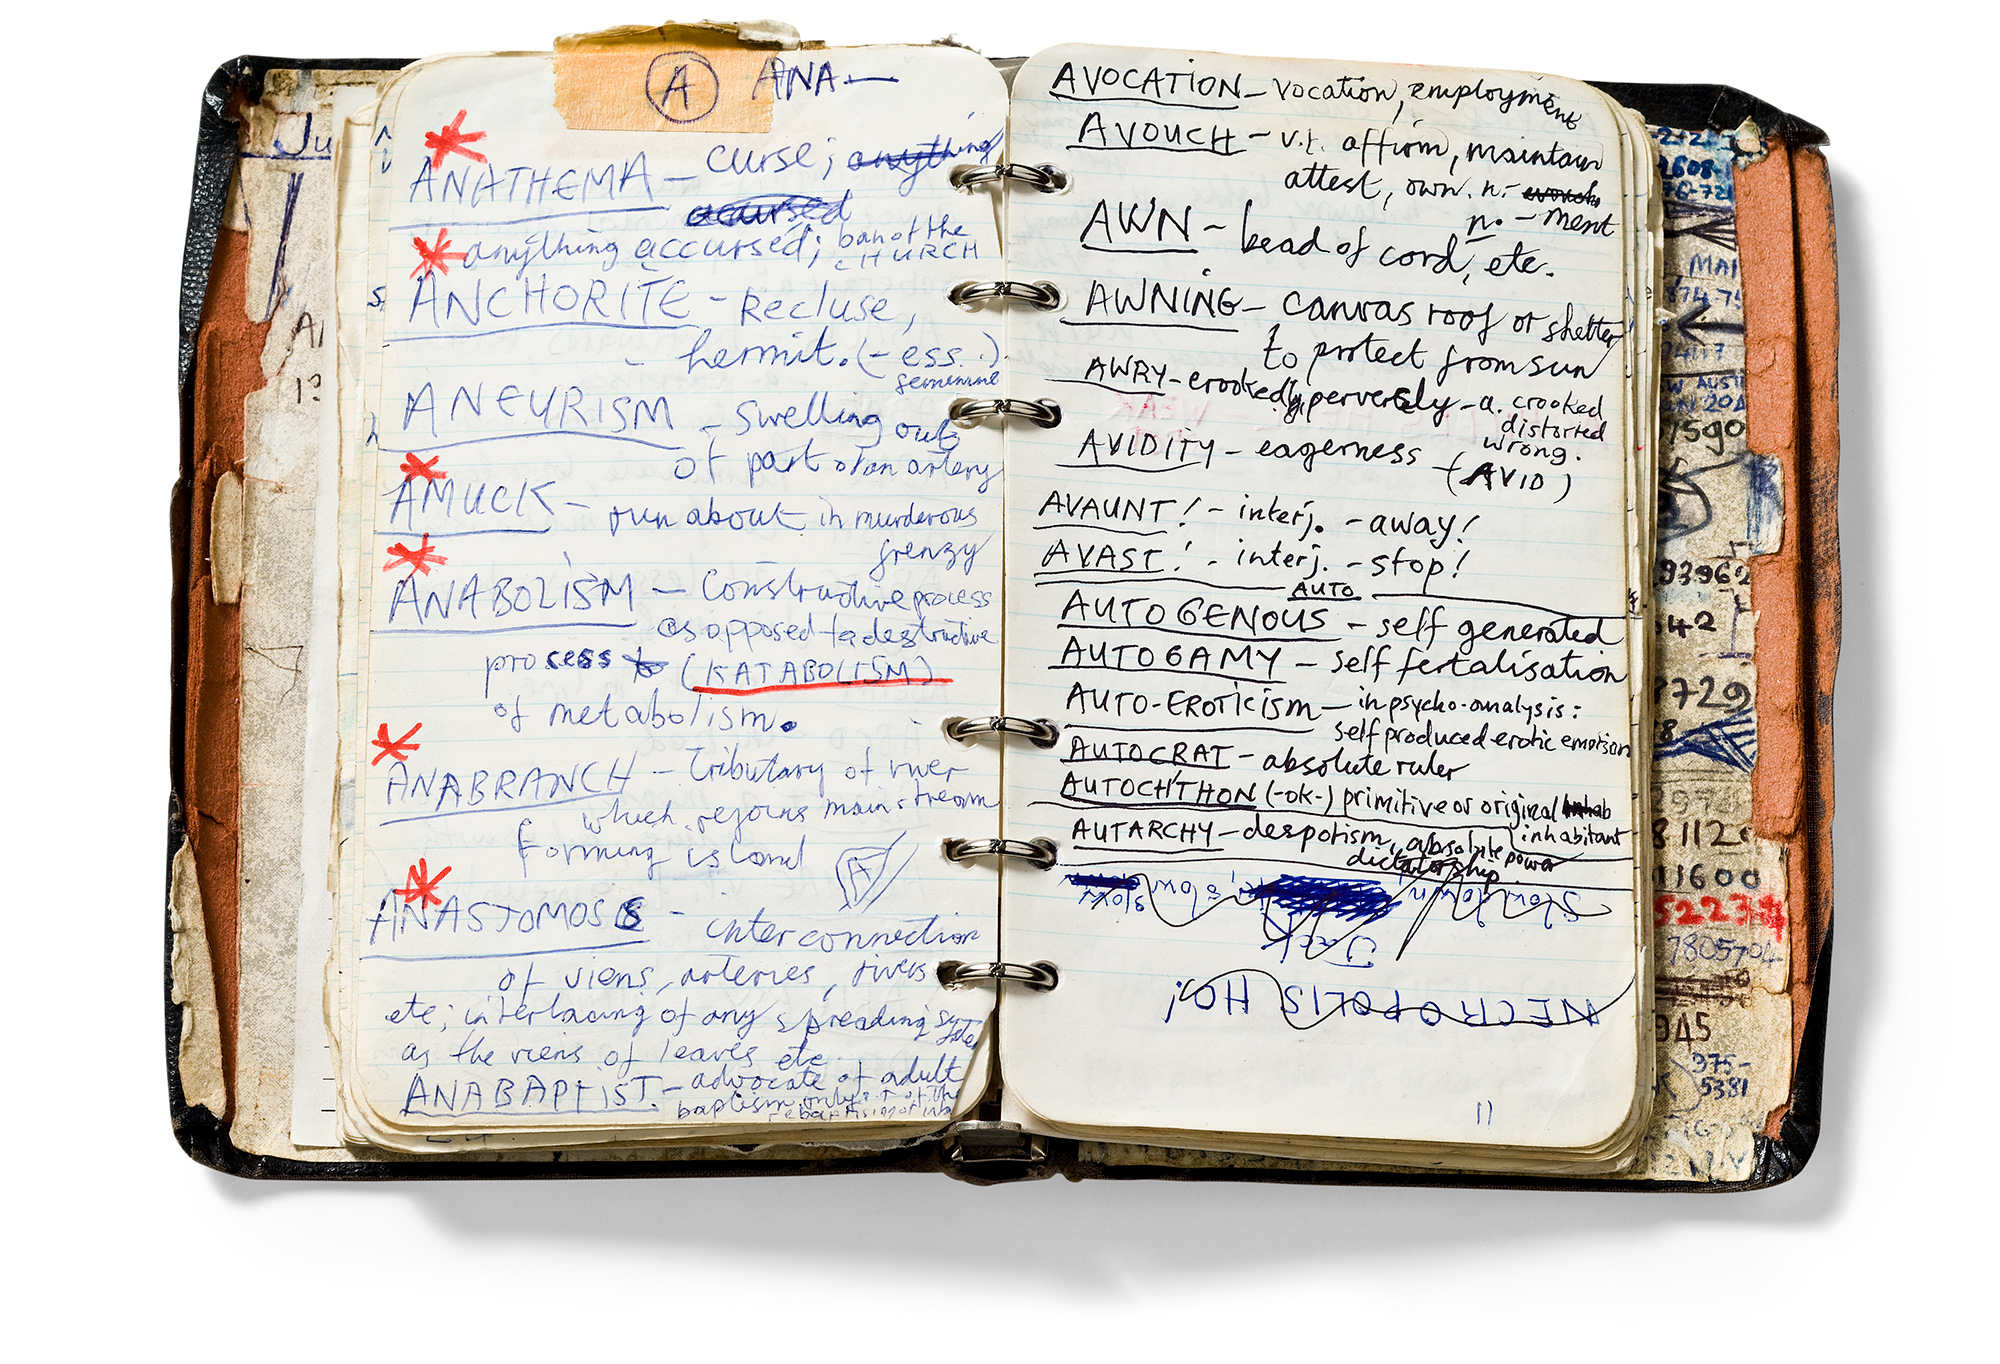 A ANA—
ANATHEMA – curse; anything
accursed
anything accursed; ban of the
CHURCH
ANCHORITE – Recluse,
- hermit. (-ess.)
feminine
ANEURISM – swelling out
of part of an artery
AMUCK – run about in murderous
frenzy
ANABOLISM – Constructive process
as opposed to destructive
process to (KATABOLISM)
of metabolism.
ANABRANCH – Tributary of river
which rejoins main stream
forming island
A
ANASTOMOSES – interconnection
of viens, arteries, rivers
etc; interlacing of any spreading system
as the viens of leaves etc
ANABAPTIST. – advocate of adult
baptism only
AVOCATION – vocation, employment
AVOUCH – v.t. affirm, maintain
attest, own. n. - avouch
n. - ment
AWN – bead of cord, etc.
AWNING – canvas roof or shelter
to protect from sun
AWRY – crookedly, perversly – a. crooked
distorted
wrong.
AVIDITY – eagerness – (AVID)
AVAUNT! – interj. – away!
AVAST! – interj. – stop!
AUTO
AUTOGENOUS – self generated
AUTOGAMY – self fertalisation
AUTO-EROTICISM – in psycho-analysis:
self produced erotic emotion
AUTOCRAT – absolute ruler
AUTOCHTHON (-ok-) primitive or original inhab
inhabitant
AUTARCHY – despotism, absolute power
dictatorship
Slow down slow slow
Jack
NECROPOLIS HO!
11
Ju
MAI
7590
93962
642
3729
8112
11600
52234
7805704
945
375-
5381